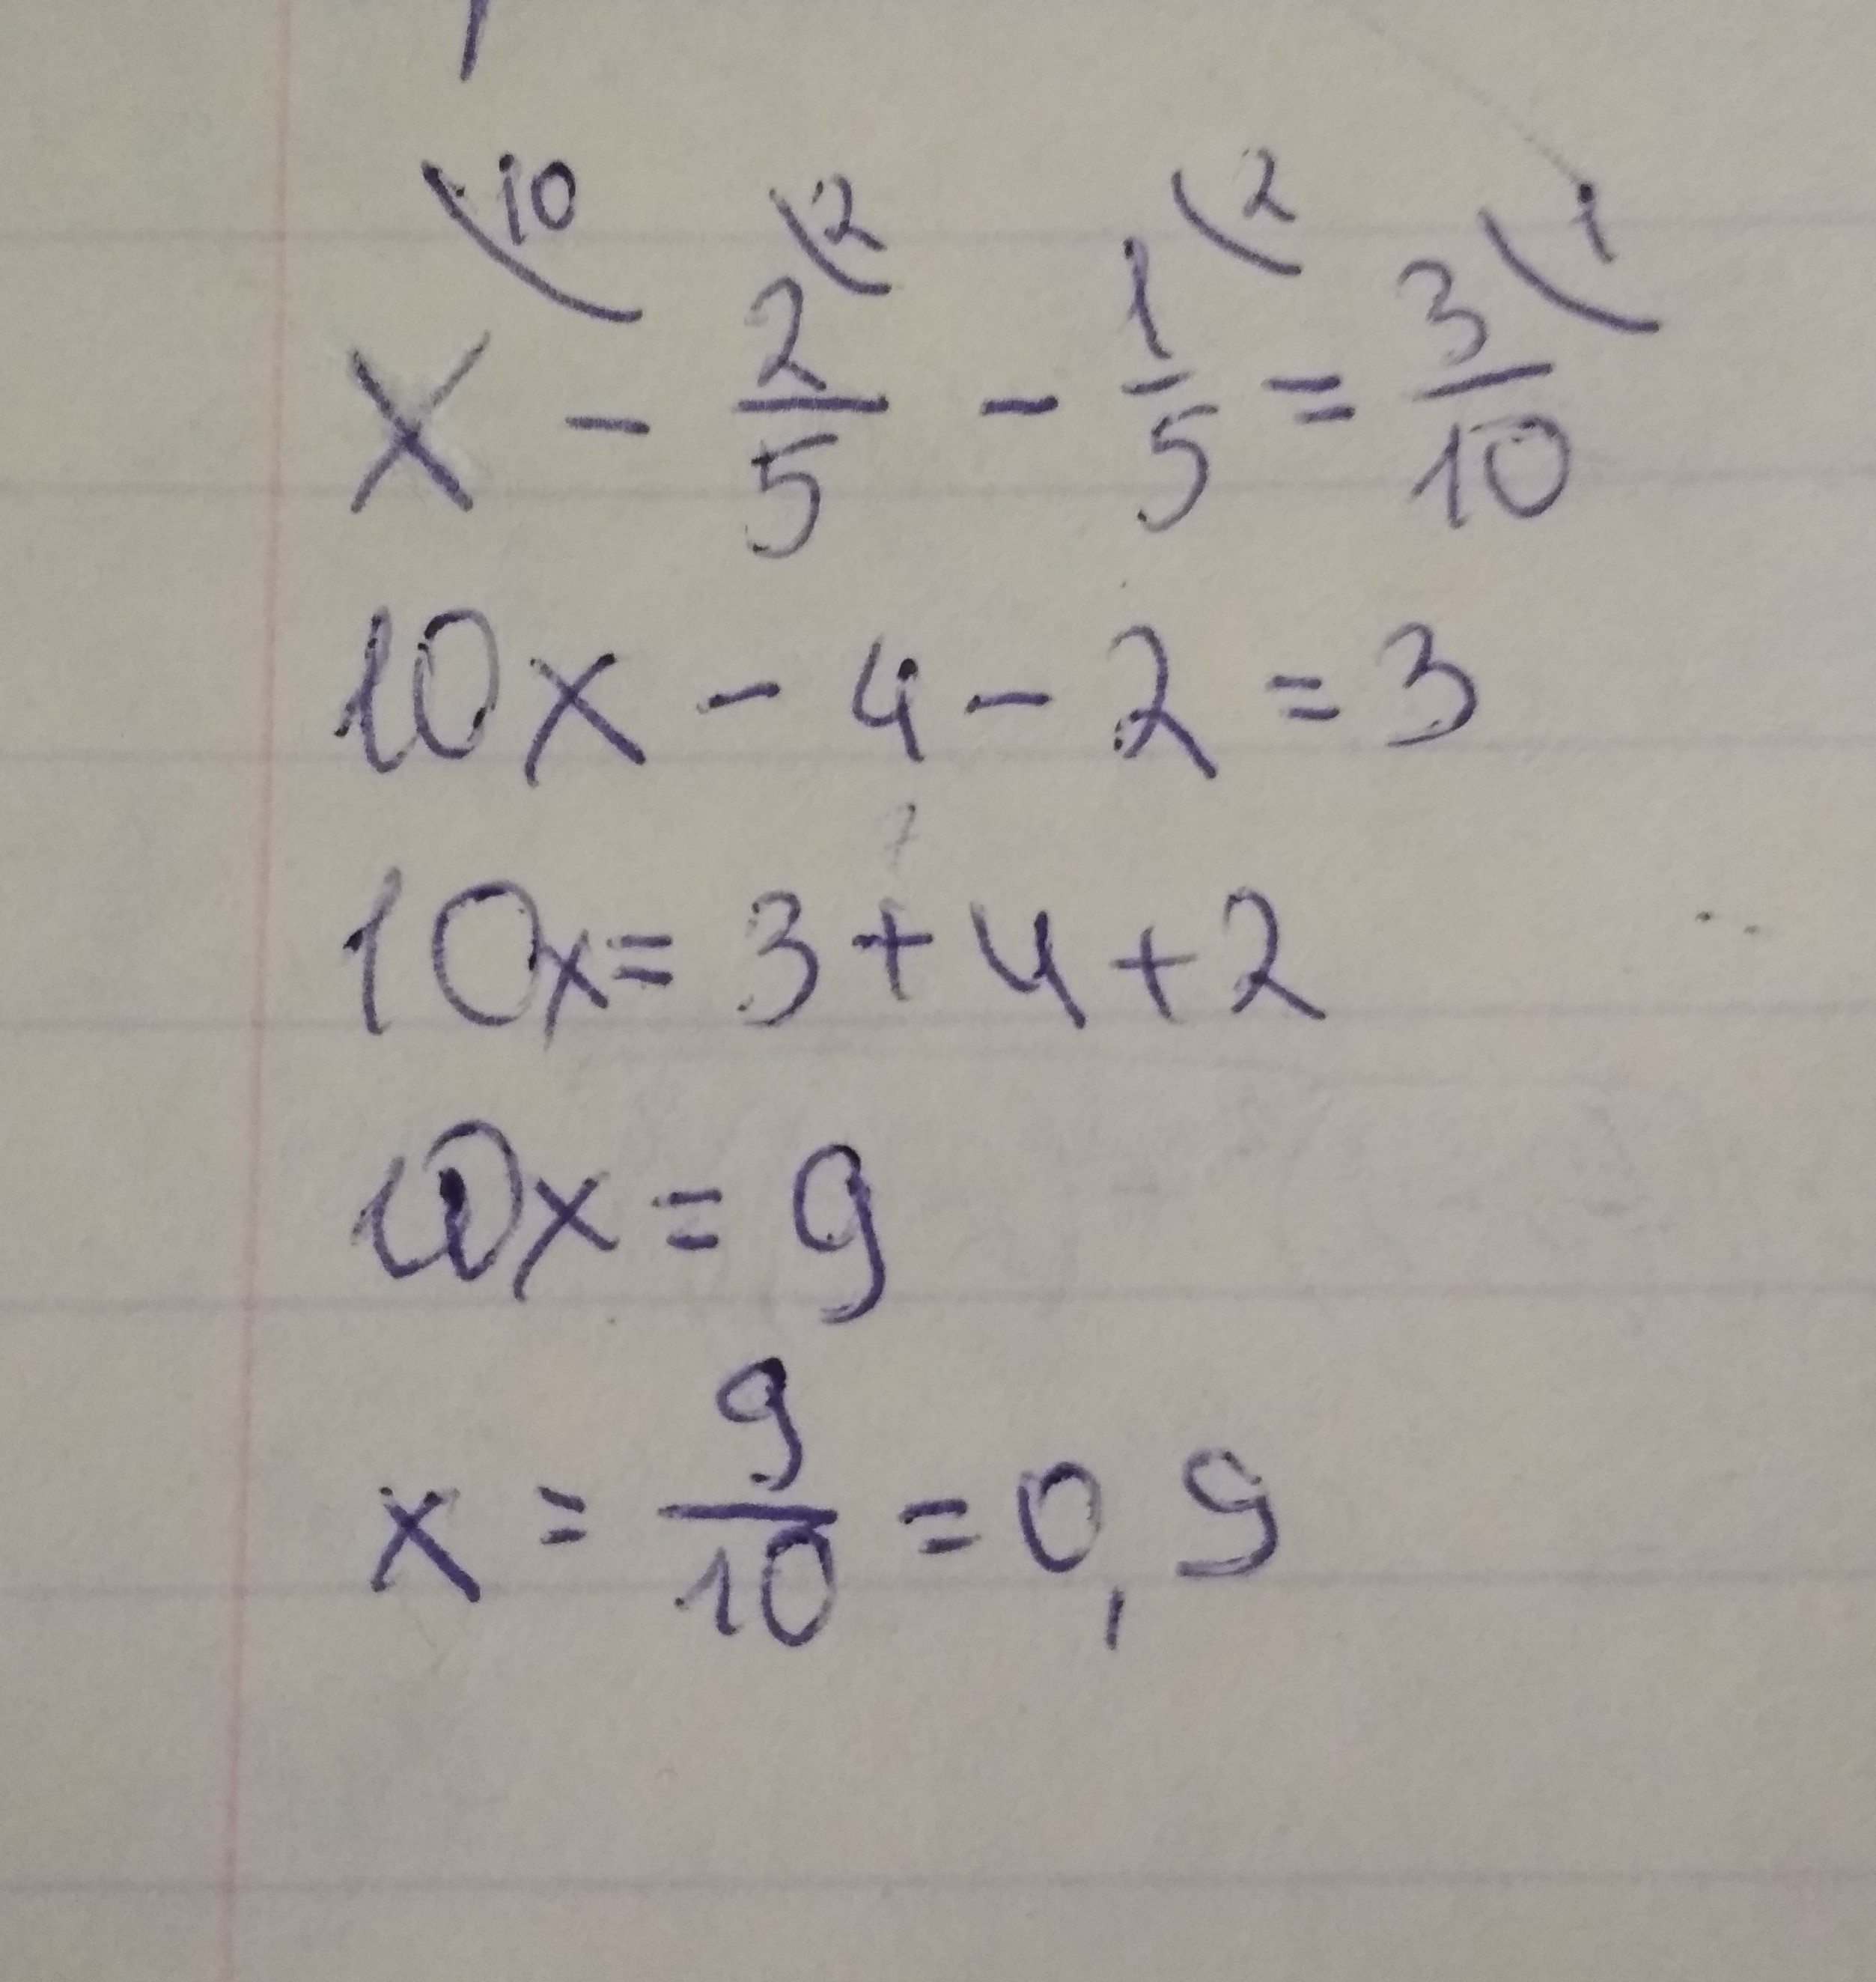 10 2 2 1
x - 2/5 - 1/5 = 3/10
10x - 4 - 2 = 3
10x = 3 + 4 + 2
10x = 9
x = 9/10 = 0,9